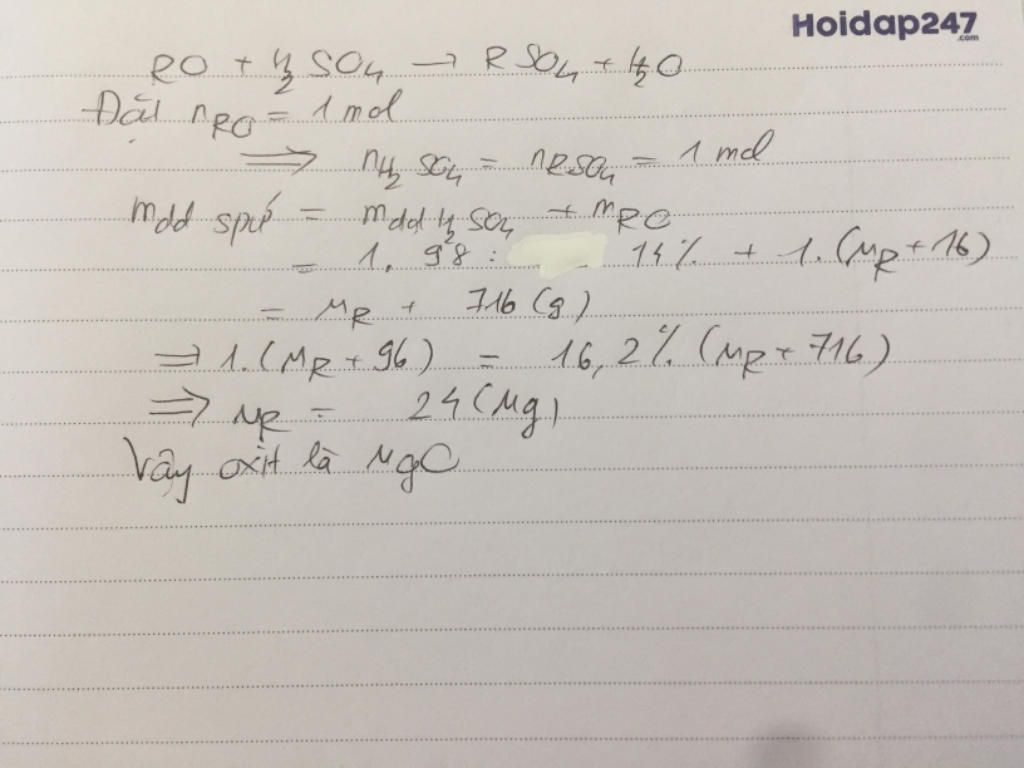 Hoidap247
.com
RO + H2SO4 → RSO4 + H2O
Đặt nRO = 1 mol
⇒ nH2SO4 = nRSO4 = 1 mol
mdd spứ = mdd H2SO4 + mRO
= 1. 98 : 14% + 1.(MR + 16)
= MR + 716 (g)
⇒ 1.(MR + 96) = 16,2% (MR + 716)
⇒ MR = 24 (Mg)
Vậy oxit là MgO